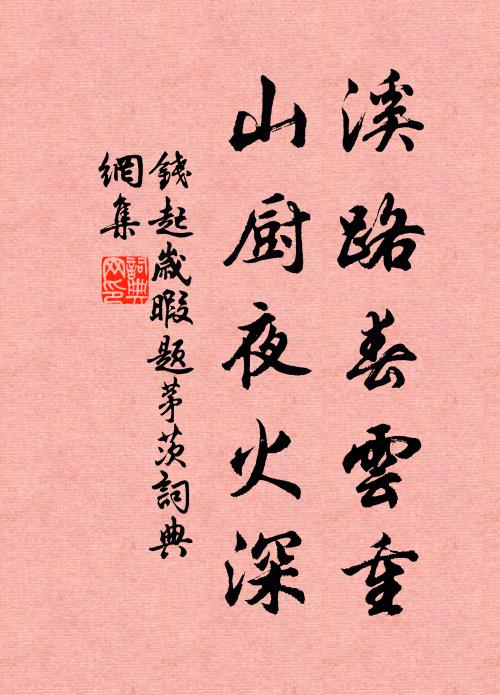 溪路春雲重
山厨夜火深
錢起歲暇題茅茨詞典
網集
詞典
网印